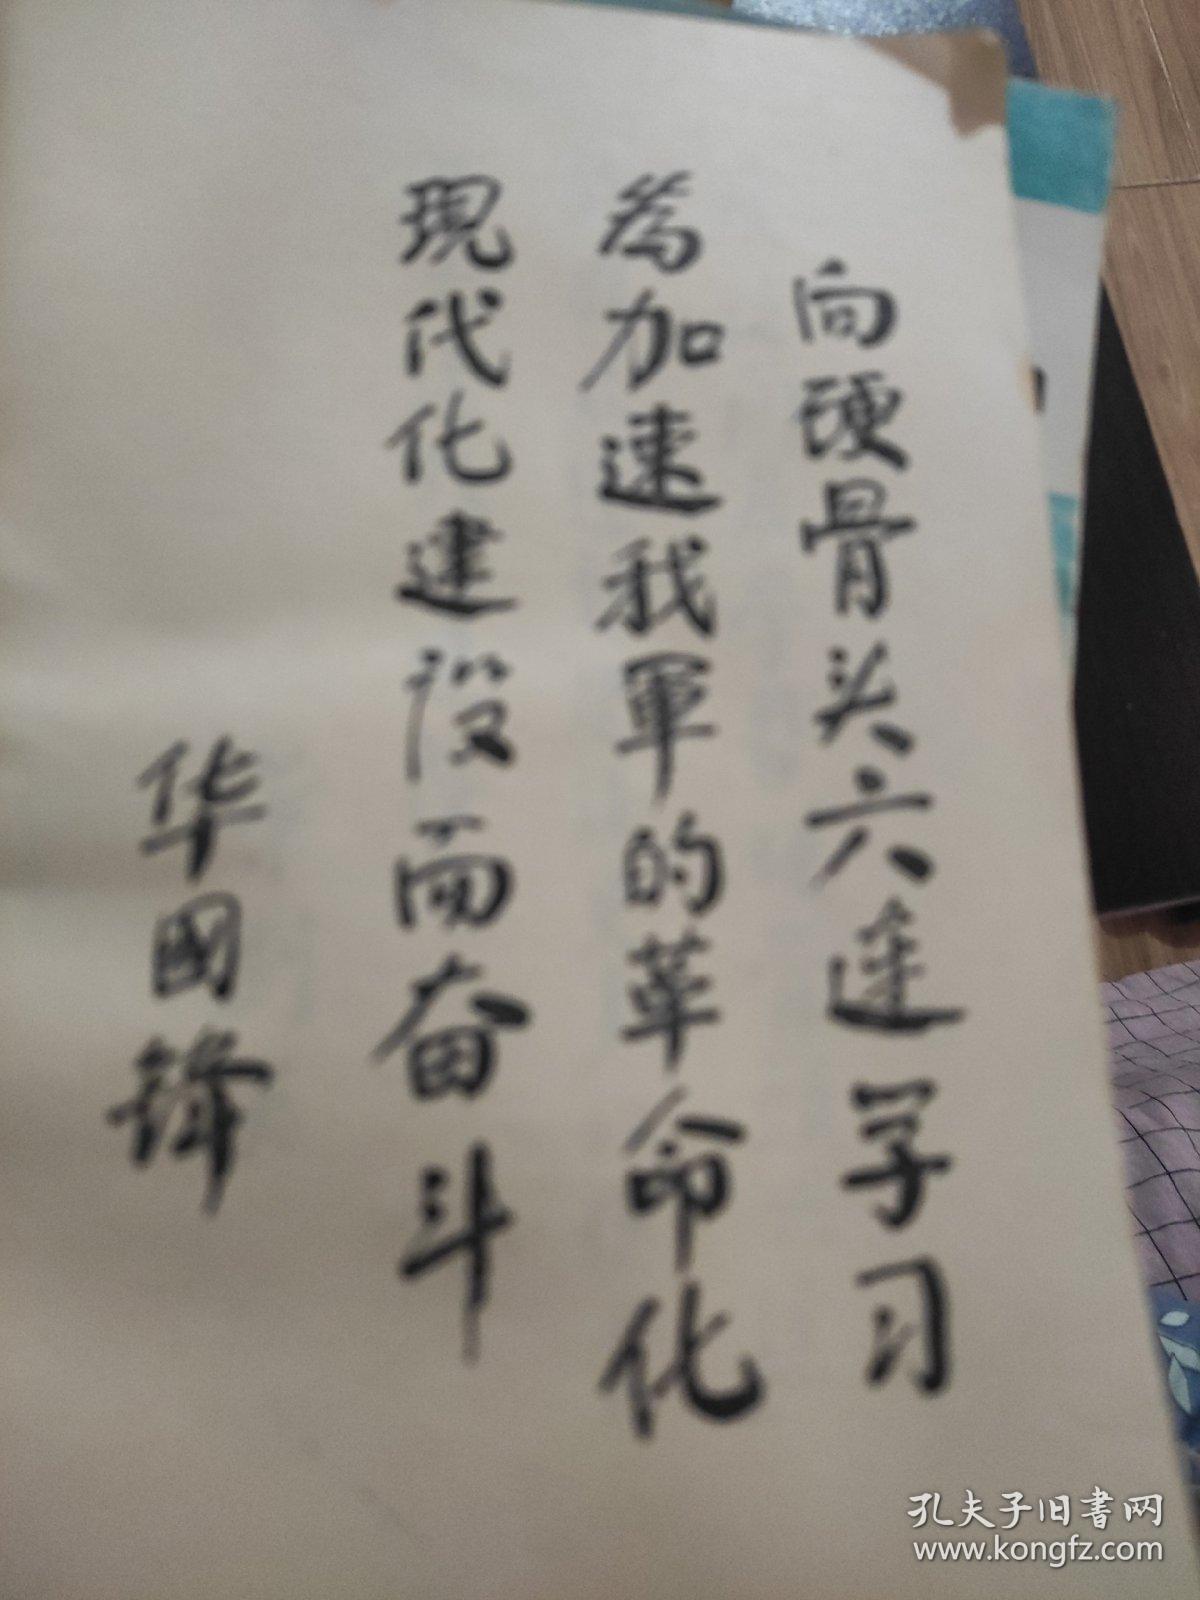 向硬骨头六连学习
為加速我軍的革命化
現代化建设而奋斗
华國锋
孔夫子旧書网
www.kongfz.com